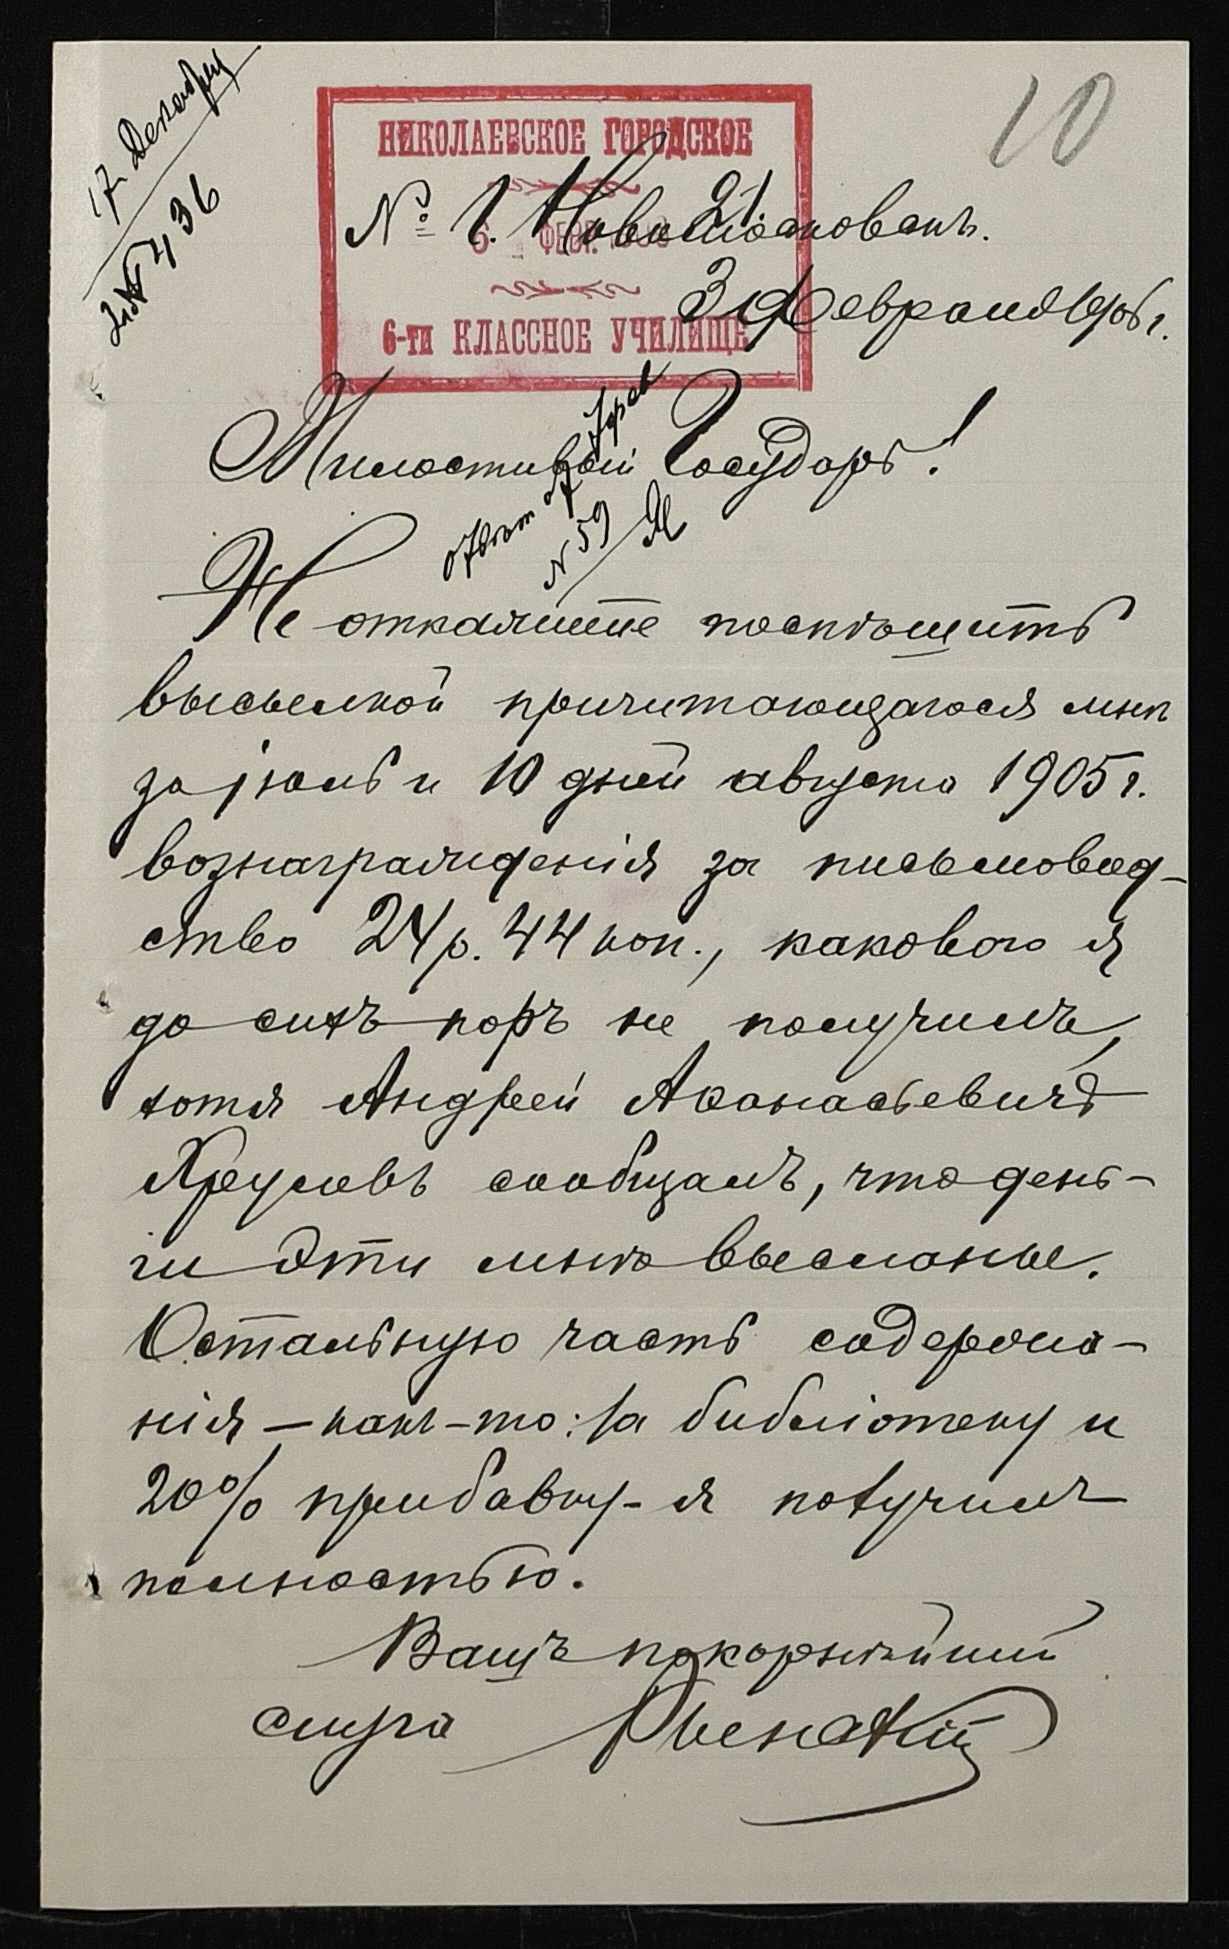 17 Декабря
№ 436
10
НИКОЛАЕВСКОЕ ГОРОДСКОЕ
№ 21
6 ФЕВР.
6-ти КЛАССНОЕ УЧИЛИЩЕ
г. Новомосковскъ.
3 февраля 1906 г.
Милостивый Государь!
отвѣт от 7 фев
№ 59
Не откажите поспѣшить
высылкой причитающагося мнѣ
за іюль и 10 дней августа 1905 г.
вознагражденія за письмовод-
ство 24 р. 44 коп., какового я
до сихъ поръ не получилъ,
хотя Андрей Аѳанасьевичъ
Хрусловъ сообщалъ, что день-
ги эти мнѣ высланы.
Остальную часть содержа-
нія – какъ-то: за библіотеку и
20% прибавку – я получилъ
полностью.
Вашъ покорнѣйшій
слуга